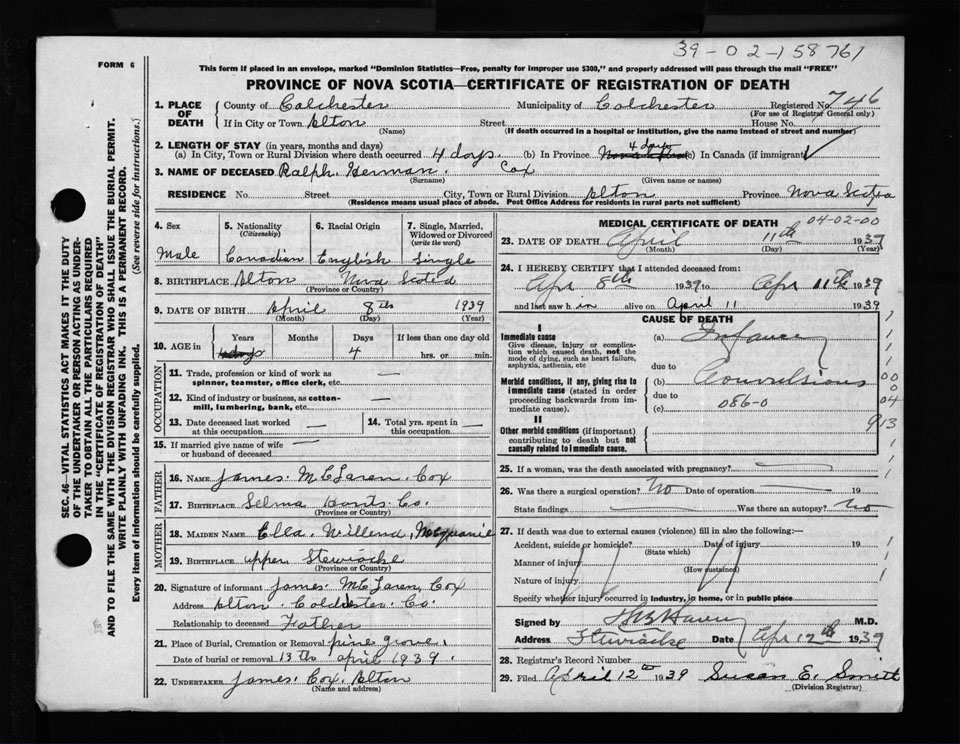 39-02-158761
FORM 6
This form if placed in an envelope, marked "Dominion Statistics—Free, penalty for improper use $300," and properly addressed will pass through the mail "FREE"
PROVINCE OF NOVA SCOTIA—CERTIFICATE OF REGISTRATION OF DEATH
SEC. 46—VITAL STATISTICS ACT MAKES IT THE DUTY
OF THE UNDERTAKER OR PERSON ACTING AS UNDER-
TAKER TO OBTAIN ALL THE PARTICULARS REQUIRED
IN THE "CERTIFICATE OF REGISTRATION OF DEATH"
AND TO FILE THE SAME WITH THE DIVISION REGISTRAR WHO SHALL ISSUE THE BURIAL PERMIT.
WRITE PLAINLY WITH UNFADING INK. THIS IS A PERMANENT RECORD.
Every item of information should be carefully supplied. (See reverse side for instructions.)
1. PLACE OF DEATH County of Colchester Municipality of Colchester Registered No. 746
(For use of Registrar General only)
If in City or Town Alton Street House No.
(Name) (If death occurred in a hospital or institution, give the name instead of street and number)
2. LENGTH OF STAY (in years, months and days)
(a) In City, Town or Rural Division where death occurred 4 days. (b) In Province 4 days (c) In Canada (if immigrant)
3. NAME OF DECEASED Ralph. Herman. Cox
(Surname) (Given name or names)
RESIDENCE No. Street City, Town or Rural Division Alton Province Nova Scotia
(Residence means usual place of abode. Post Office Address for residents in rural parts not sufficient)
4. Sex 5. Nationality (Citizenship) 6. Racial Origin 7. Single, Married, Widowed or Divorced (write the word)
Male Canadian English Single
8. BIRTHPLACE Alton Nova Scotia
(Province or Country)
9. DATE OF BIRTH April 8th 1939
(Month) (Day) (Year)
10. AGE in Years Months Days If less than one day old
4 hrs. or min.
OCCUPATION
11. Trade, profession or kind of work as spinner, teamster, office clerk, etc. —
12. Kind of industry or business, as cotton-mill, lumbering, bank, etc. —
13. Date deceased last worked at this occupation — 14. Total yrs. spent in this occupation —
15. If married give name of wife or husband of deceased —
FATHER
16. NAME James. McLaren. Cox
17. BIRTHPLACE Selma Hants. Co.
(Province or Country)
MOTHER
18. MAIDEN NAME Ella.
19. BIRTHPLACE upper Stewiacke
(Province or Country)
20. Signature of informant James. McLaren. Cox
Address Alton. Colchester. Co.
Relationship to deceased Father
21. Place of Burial, Cremation or Removal pine grove.
Date of burial or removal 13th april 1939.
22. UNDERTAKER James. Cox. Alton
(Name and address)
MEDICAL CERTIFICATE OF DEATH 04-02-00
23. DATE OF DEATH April 11th 1939
(Month) (Day) (Year)
24. I HEREBY CERTIFY that I attended deceased from:
Apr 8th 1939 to Apr 11th 1939
and last saw h im alive on April 11 1939
CAUSE OF DEATH
I
Immediate cause
Give disease, injury or complication which caused death, not the mode of dying, such as heart failure, asphyxia, asthenia, etc
(a) Infancy
due to
Morbid conditions, if any, giving rise to immediate cause (stated in order proceeding backwards from immediate cause).
(b) Convulsions
due to
(c) 086-0
II
Other morbid conditions (if important) contributing to death but not causally related to immediate cause.
00
0
04
913
25. If a woman, was the death associated with pregnancy? —
26. Was there a surgical operation? No Date of operation 19
State findings Was there an autopsy? No
27. If death was due to external causes (violence) fill in also the following:—
Accident, suicide or homicide? Date of injury 19
(State which)
Manner of injury
(How sustained)
Nature of injury
Specify whether injury occurred in industry, in home, or in public place
Signed by M.D.
Address Stewiacke Date Apr 12th 1939
28. Registrar's Record Number
29. Filed April 12th 1939 Susan E. Smith
(Division Registrar)